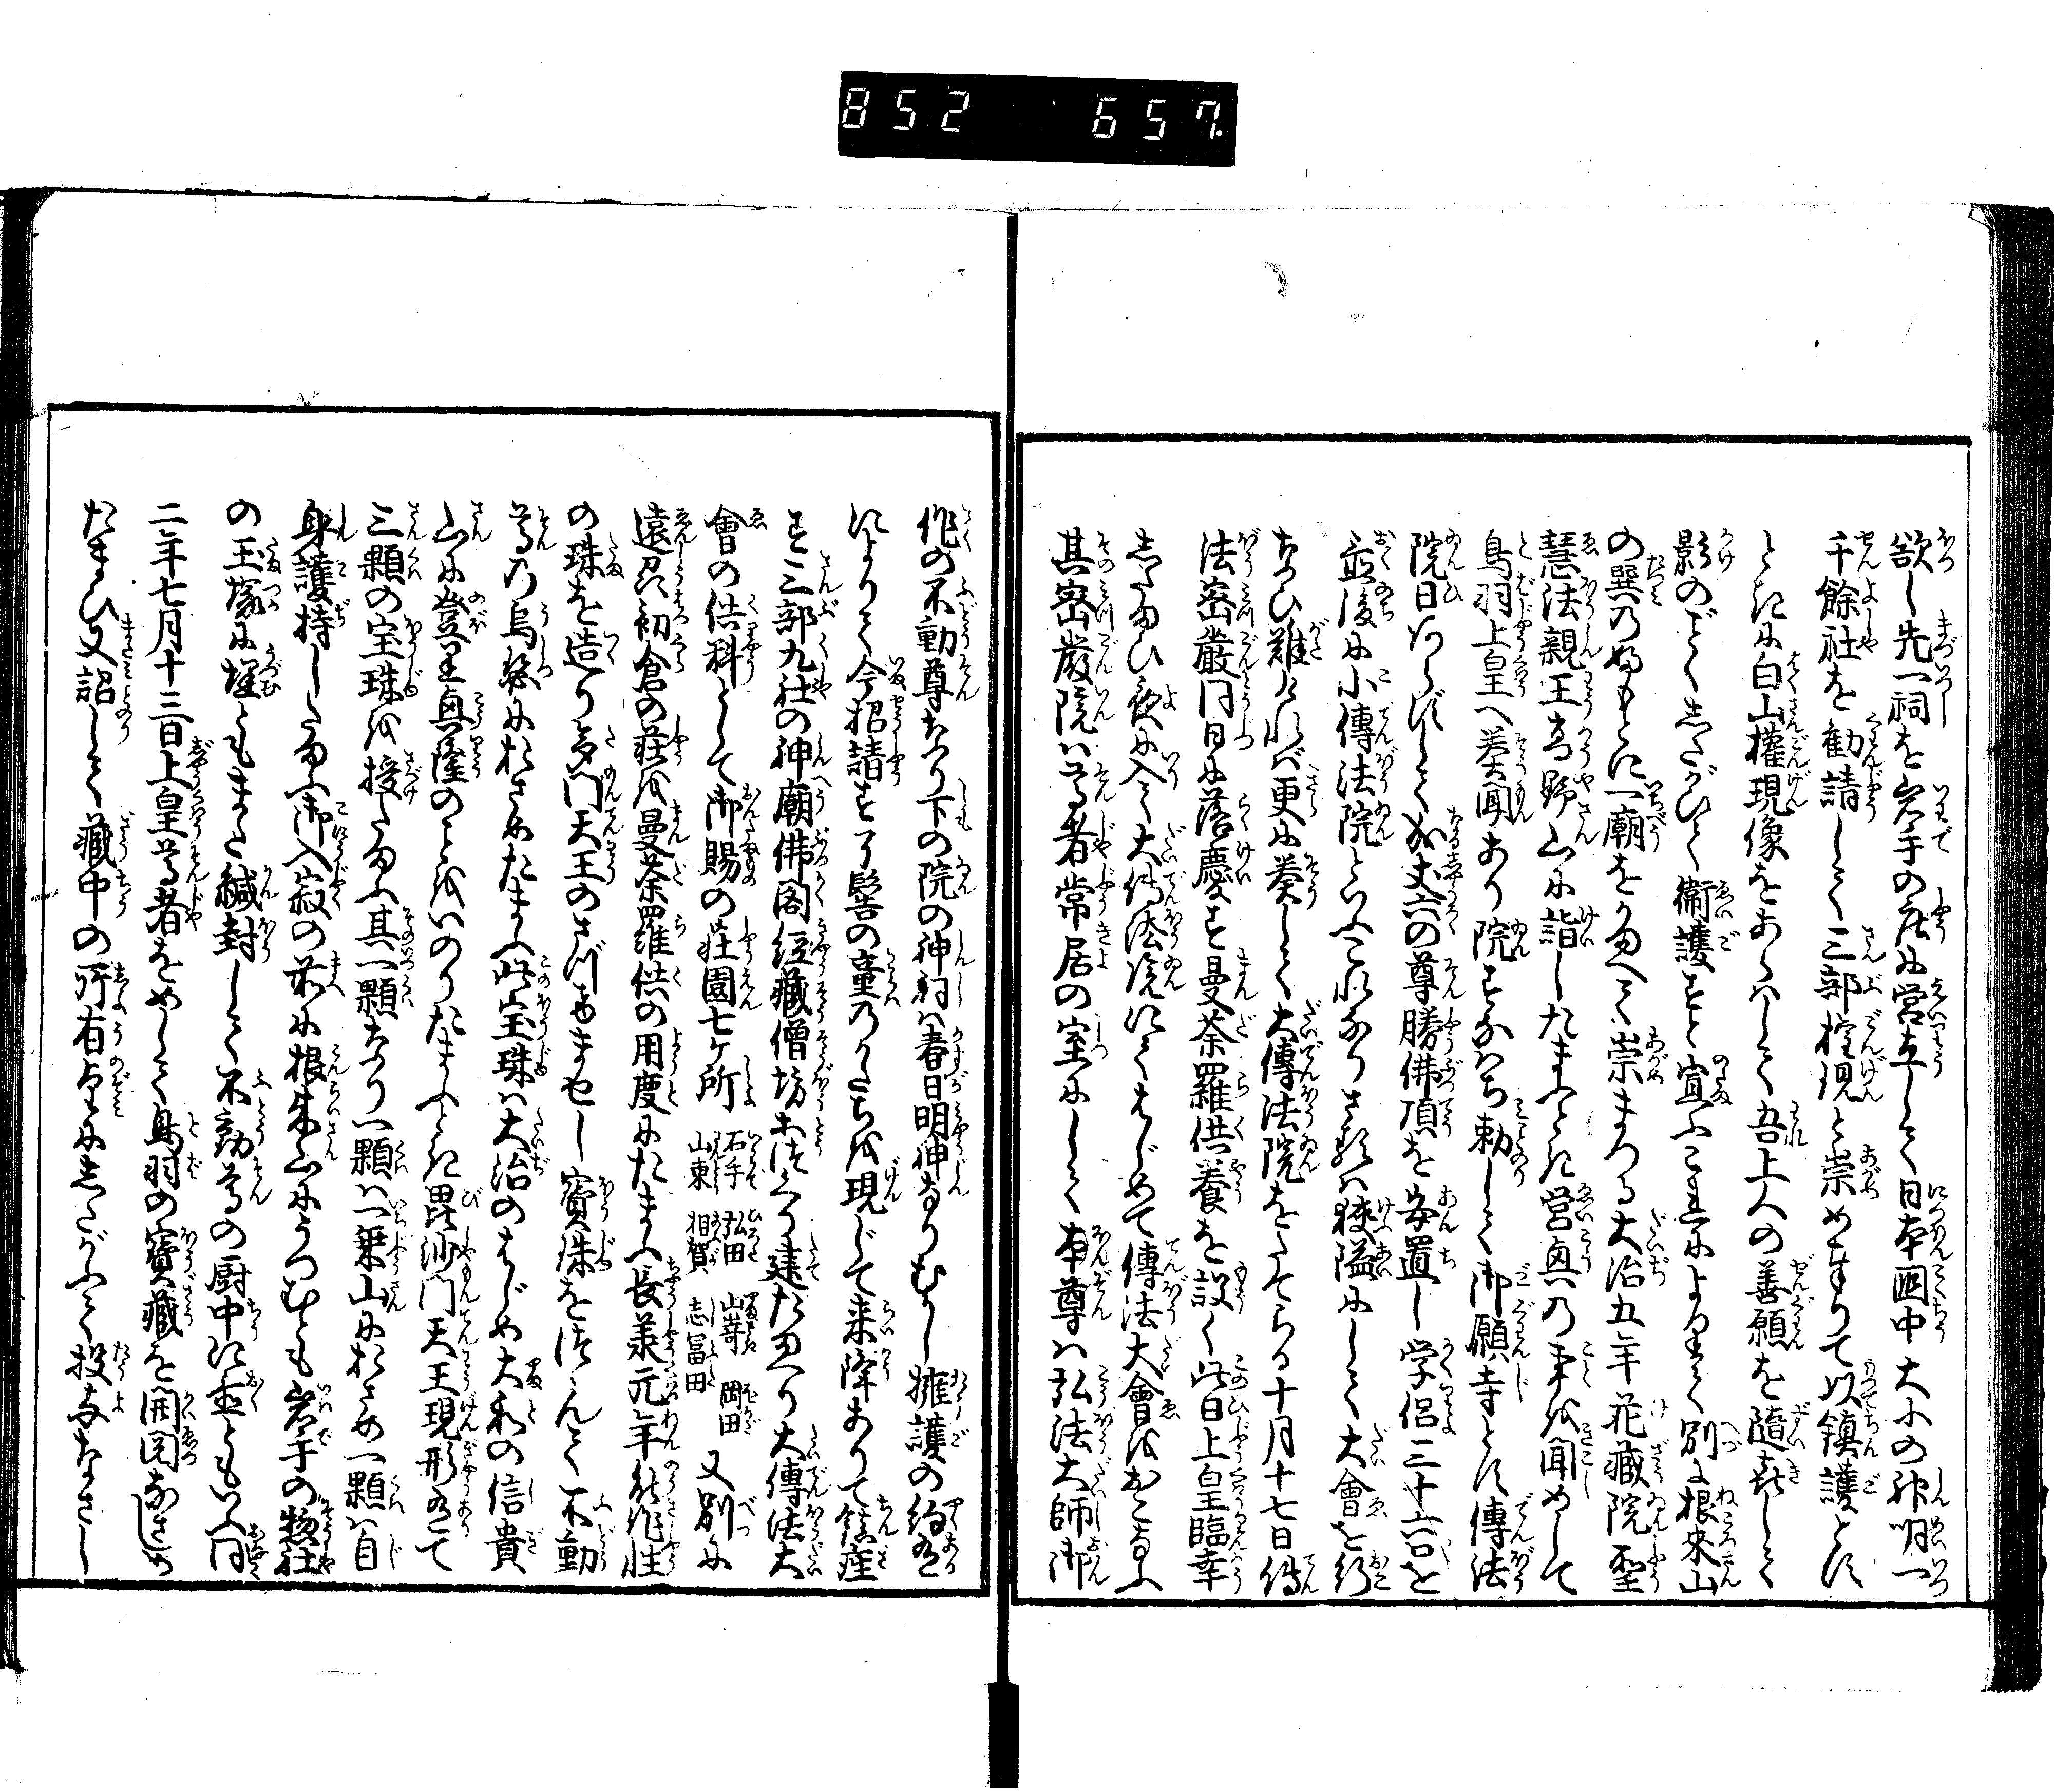 852 657.
欲し先一祠を岩手の庄に営立して日本国中大小の神明一
千餘社を勧請して三部権現と崇め奉りて以鎮護とす
ときに白山権現像をあらはして吾上人の善願を随喜して
影のごとくしたがひて衛護すと宣ふこれによりて別に根来山
の巽のふもとに一廟をかまへて崇まつる大治五年花蔵院聖
慧法親王高野山に詣したまふとき営興の事を聞めして
鳥羽上皇へ奏聞あり院すなはち勅して御願寺とす傳法
院日ならずして成丈六の尊勝佛頂を安置し学侶三十六口を
置後に小傳法院といふこれなりされば狭隘にして大會を行
なひ難ければ更に奏して大傳法院をたてらる十月十七日傳
法密嚴同日に落慶す曼荼羅供養を設く此日上皇臨幸
したまひ夜に入て大傳法院にてはじめて傳法大會をおこなふ
其密嚴院は尊者常居の室にして本尊は弘法大師御
作の不動尊なり下の院の神祠は春日明神なりむかし擁護の約有
によりて今招請す了髻の童のかたちを現じて来降ありて鎮座
す三部九社の神廟佛閣経蔵僧坊等つく建たまへり大傳法大
會の供料として御賜の荘園七ケ所 石手 弘田 山嵜 岡田 山東 相賀 志冨田 又別に
遠江初倉の荘を曼荼羅供の用度にたまふ長承元年能作性
の珠を造り多門天王のさづけませし寳珠を法んて不動
尊の烏瑟におさめたまふ此宝珠は大治のはじめ大和の信貴
山に登て興隆のことをいのりたまふとき毘沙門天王現形有て
三顆の宝珠を授たまふ其一顆なり一顆は一乗山におさめ一顆は自
身護持したまふ御入寂の前に根来山にうつむとも岩手の惣社
の玉塚に埋ともまた緘封して不動尊の厨中に置ともいへり同
二年七月十三日上皇尊者をめして鳥羽の寳藏を開閲なさしめ
たまひ又詔して藏中の所有望にしたがふて投与なさし